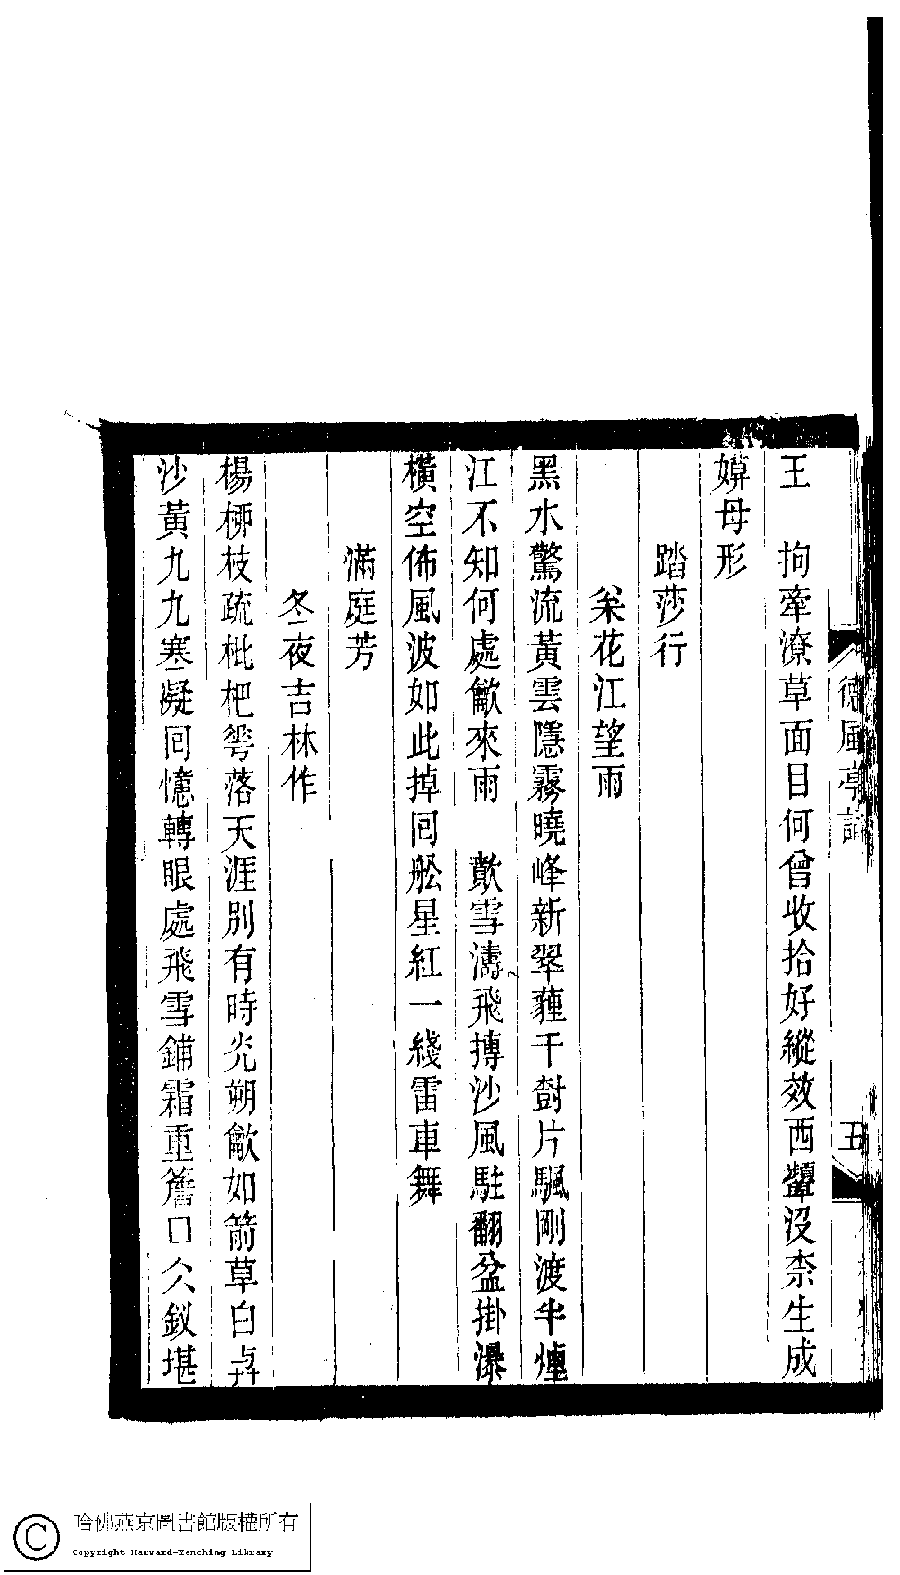 王　拘牽潦草面目何曾收拾好縱效西顰沒柰生成
嫫母形
踏莎行
枀花江望雨
黑水驚流黃雲隱霧曉峰新翠蕹千尌片颿剛渡半煙
江不知何處龡來雨　歕雪濤飛摶沙風駐翻盆掛瀑
橫空佈風波如此掉囘舩星紅一綫雷車舞
滿庭芳
冬夜吉林作
楊桺枝疏枇杷夸落天涯別有時光朔龡如箭草白
沙黃九九寒凝囘憶轉眼處飛雪鋪霜重簷口仌釵堪
德風亭詞
五
哈佛燕京圖書館版權所有
Copyright Harvard-Yenching Library